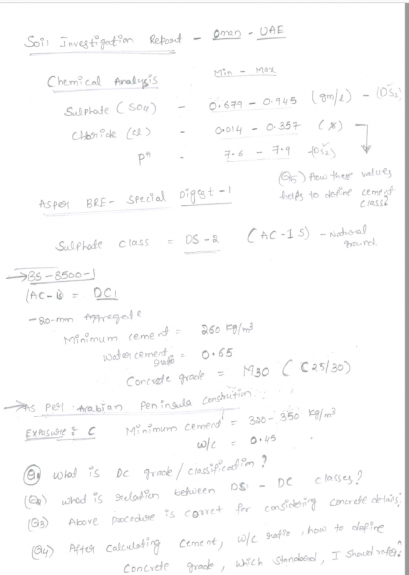 Soil Investigation Report - Oman - UAE
Chemical Analysis Min - Max
Sulphate (SO4) - 0.679 - 0.945 (gm/l) - (DS2)
Chloride (cl) - 0.014 - 0.357 (%)
pH - 7.6 - 7.9 (DS2)
(Q5) How these values
helps to define cement
class?
As per BRE - Special Digest - 1
Sulphate class = DS-2 (AC-1S) - Natural
ground.
→ BS-8500-1
(AC-1S = DC1
- 20-mm Aggregate
Minimum cement = 260 kg/m3
Water cement ratio = 0.65
Concrete grade = M30 (C25/30)
→ As per Arabian Peninsula Constrution
Exposure: C Minimum cement = 320-350 kg/m3
w/c = 0.45
(Q1) What is DC grade/classification?
(Q2) what is relation between DS - DC classes?
(Q3) Above procedure is corret for considering concrete details?
(Q4) After calculating cement, w/c ratio, how to define
concrete grade, which standard, I should refer?